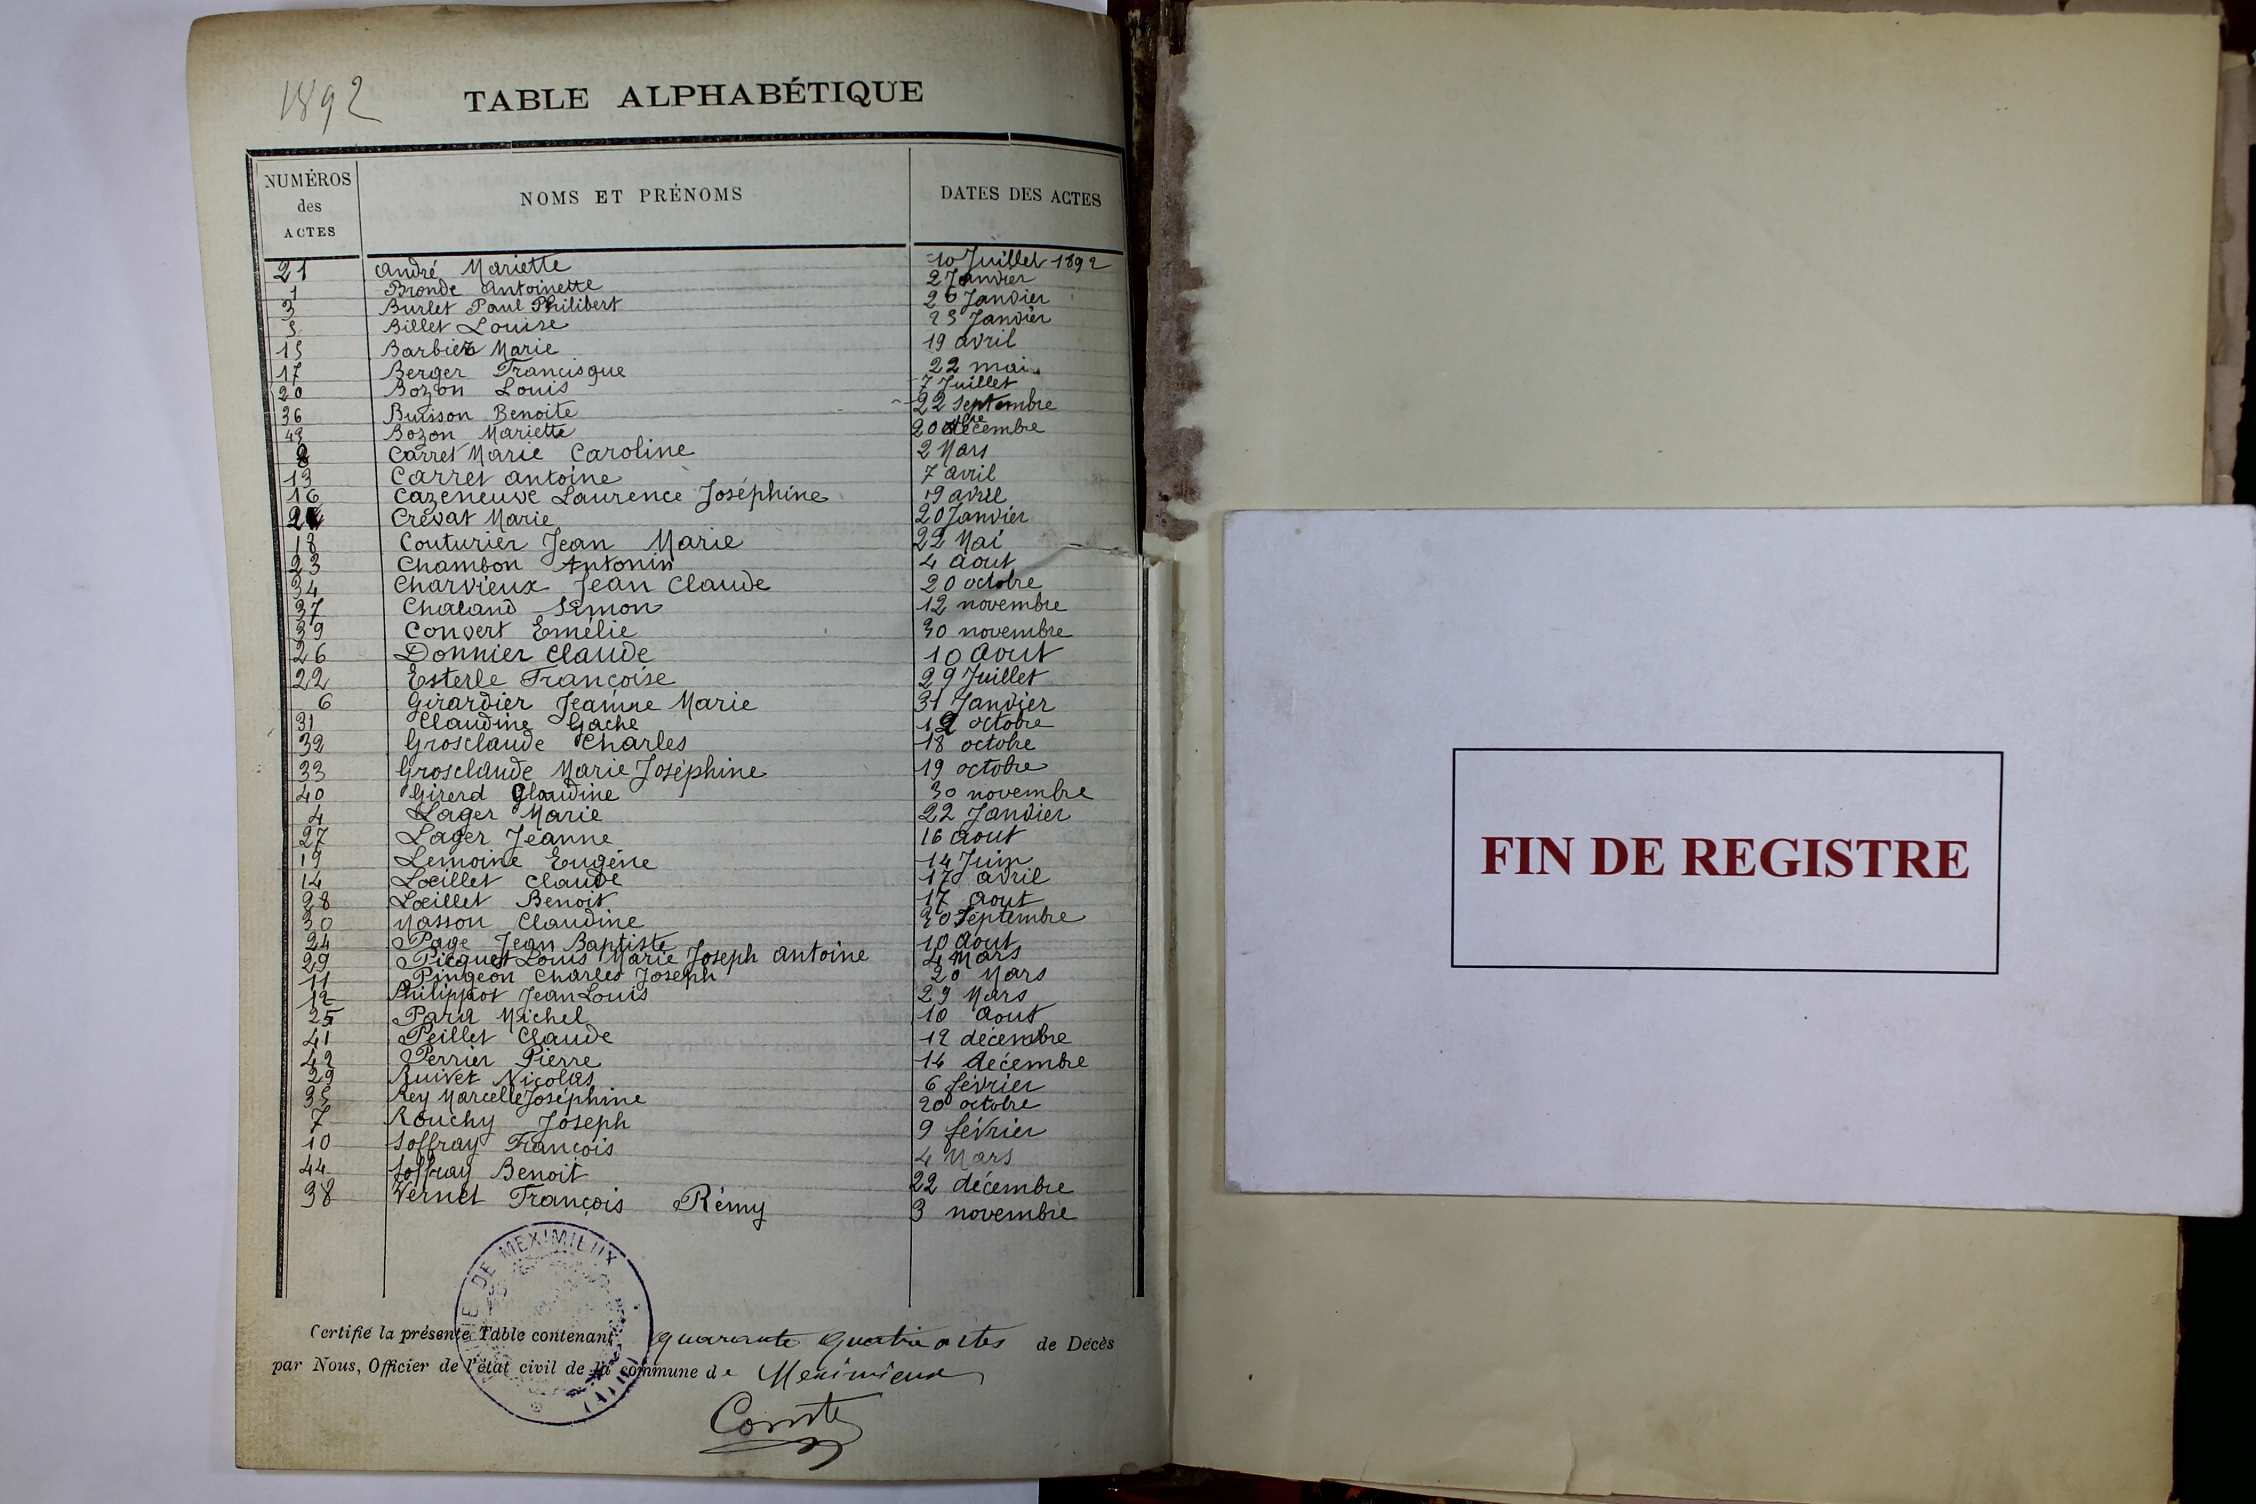 1892
TABLE ALPHABÉTIQUE
NUMÉROS des ACTES NOMS ET PRÉNOMS DATES DES ACTES
21 André Mariette 10 Juillet 1892
1 Bronde Antoinette 2 Janvier
3 Burlet Paul Philibert 20 Janvier
5 Billet Louise 25 Janvier
15 Barbier Marie 19 avril
17 Berger Francisque 22 mai
20 Bozon Louis 7 Juillet
36 Buisson Benoite 22 septembre
43 Bozon Mariette 20 décembre
8 Carret Marie Caroline 2 Mars
13 Carret antoine 7 avril
16 Cazeneuve Laurence Joséphine 19 avril
2 Crévat Marie 20 Janvier
18 Couturier Jean Marie 22 Mai
23 Chambon Antonin 4 aout
34 Charvieux Jean Claude 20 octobre
37 Chaland Simon 12 novembre
39 Convert Emélie 30 novembre
26 Donnier Claude 10 Aout
22 Esterle Françoise 29 Juillet
6 Girardier Jeanne Marie 31 Janvier
31 Claudine Gache 12 octobre
32 Grosclaude Charles 18 octobre
33 Grosclaude Marie Joséphine 19 octobre
40 Girerd Claudine 30 novembre
4 Lager Marie 22 Janvier
27 Lager Jeanne 16 aout
19 Lemoine Eugène 14 Juin
14 Lœillet Claude 17 avril
28 Lœillet Benoit 17 aout
30 Masson Claudine 30 Septembre
24 Page Jean Baptiste 10 aout
29 Picquet Louis Marie Joseph antoine 4 Mars
11 Pingeon Charles Joseph 20 Mars
12 Philippot Jean Louis 29 Mars
25 Michel 10 aout
41 Peillet Claude 12 décembre
42 Perrier Pierre 14 décembre
29 Ruivet Nicolas 6 février
35 Rey Marcelle Joséphine 20 octobre
7 Rouchy Joseph 9 février
10 Soffray François 4 Mars
44 Soffray Benoit 22 décembre
38 Vernet François Rémy 3 novembre
MAIRIE DE MEXIMIEUX (AIN)
Certifié la présente Table contenant quarante quatre actes de Décès
par Nous, Officier de l'état civil de la commune de Meximieux
Comte
FIN DE REGISTRE